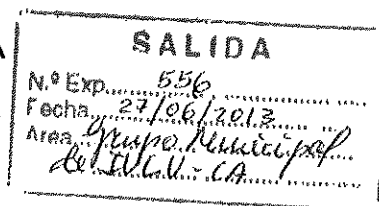 SALIDA
N.º Exp. 556
Fecha 27/06/2013
Area Grupo Municipal
de IU.LV-CA